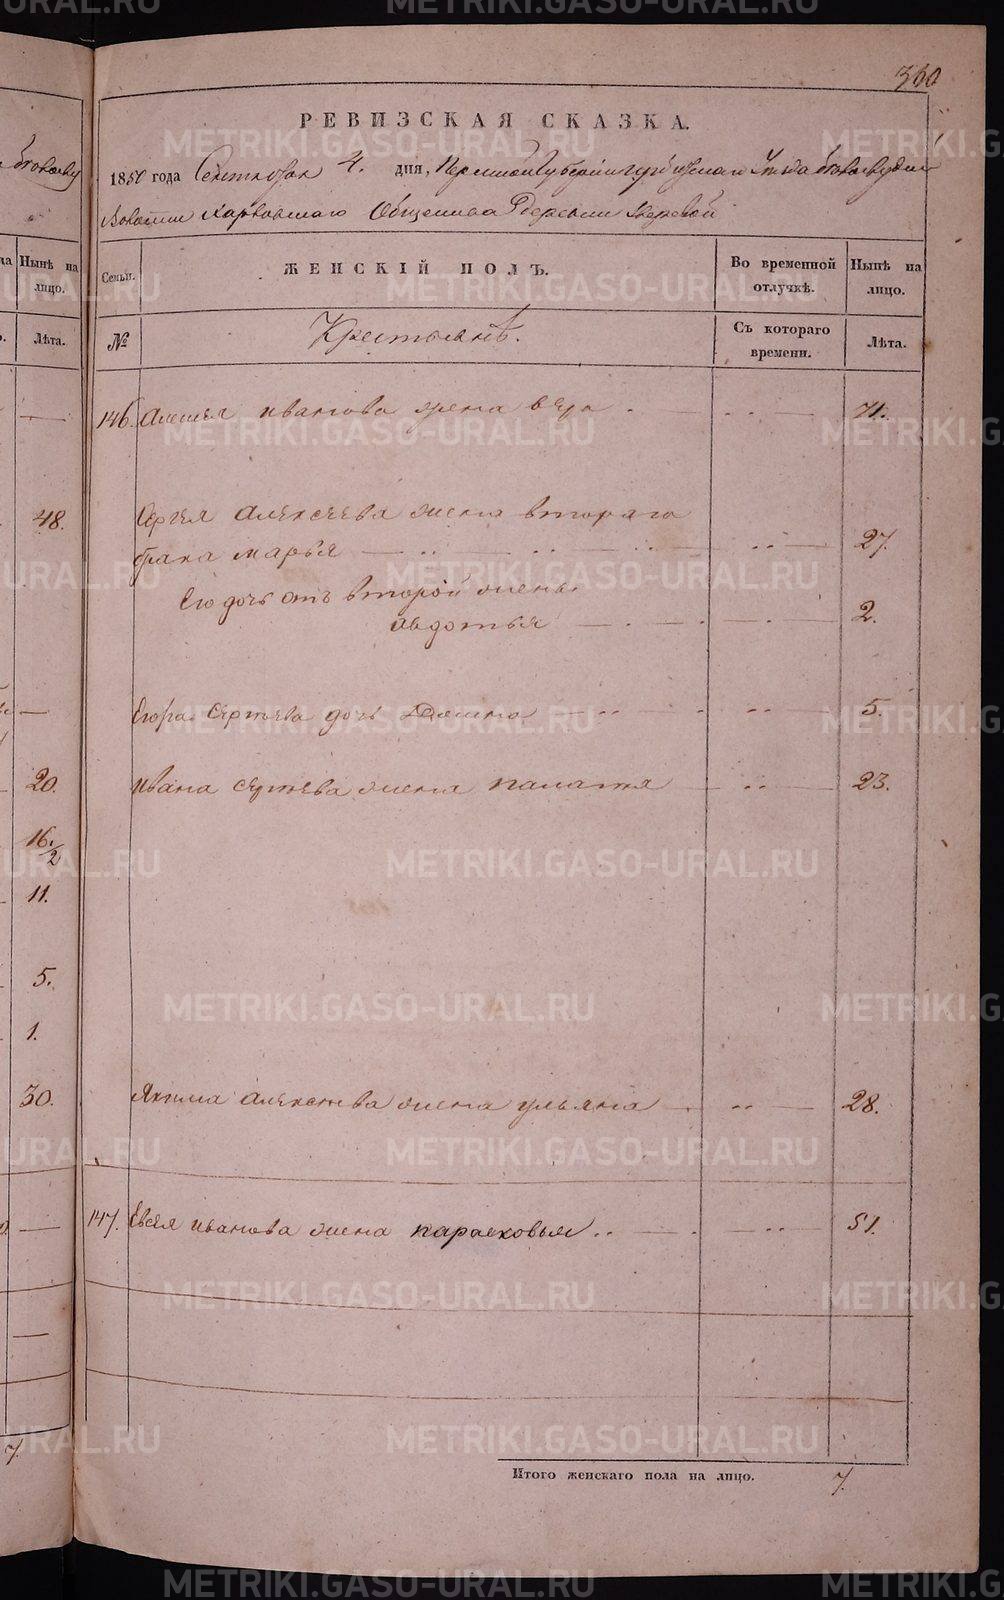 360
РЕВИЗСКАЯ СКАЗКА.
1850 года Сентября 4. дня, Пермской Губернии уезда
Волости Общества Деревни Зверевой
Нынѣ на лицо.
Семьи.
ЖЕНСКІЙ ПОЛЪ.
Во временной отлучкѣ.
Нынѣ на лицо.
Лѣта.
№
Крестьянъ.
Съ котораго времени.
Лѣта.
146. Алексея иванова жена вера 71.
48.
Сергея Алексеева жена втораго
брака марья 27.
Его дочь отъ второй жены
Авдотья 2.
Егора Сергеева дочь 5.
20.
ивана сергеева жена палагея 23.
16 1/2
11.
5.
1.
30.
Якима Алексеева жена ульяна 28.
147. Евсея иванова жена парасковья 51.
7.
Итого женскаго пола на лицо. 7.
METRIKI.GASO-URAL.RU